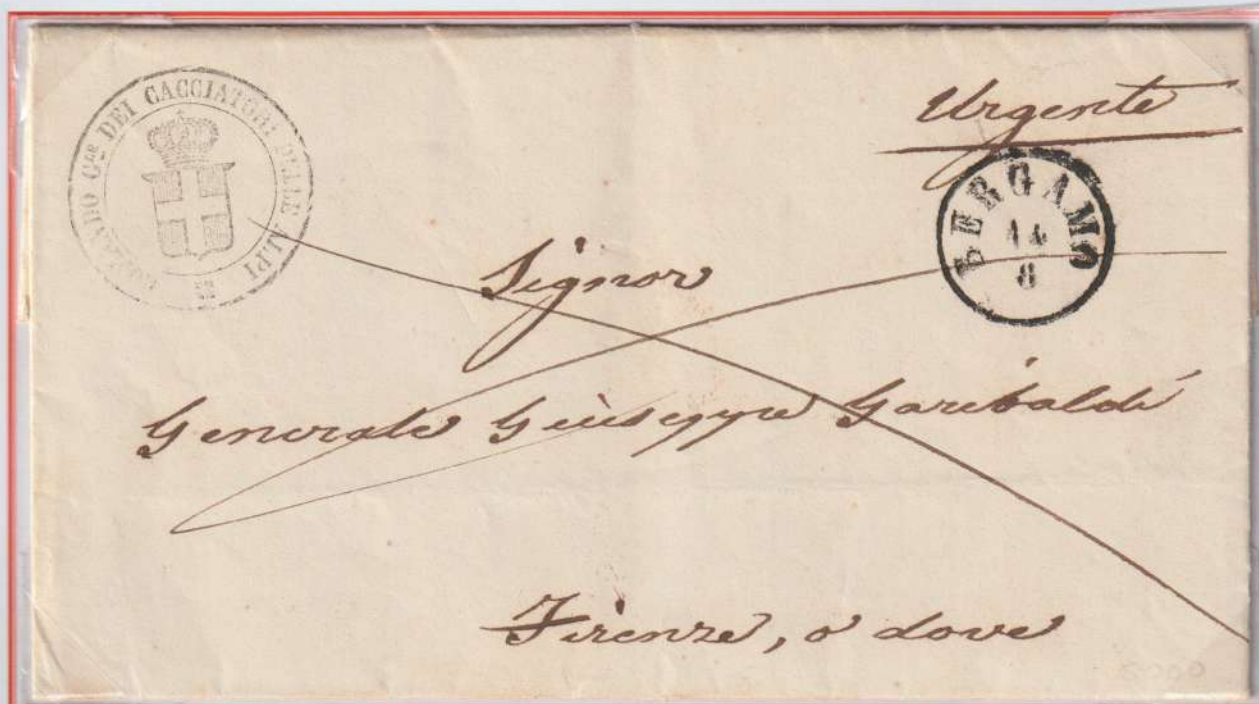 COMANDO G.le DEI CACCIATORI DELLE ALPI
Urgente
BERGAMO
14
8
Signor
Generale Giuseppe Garibaldi
Firenze, o dove